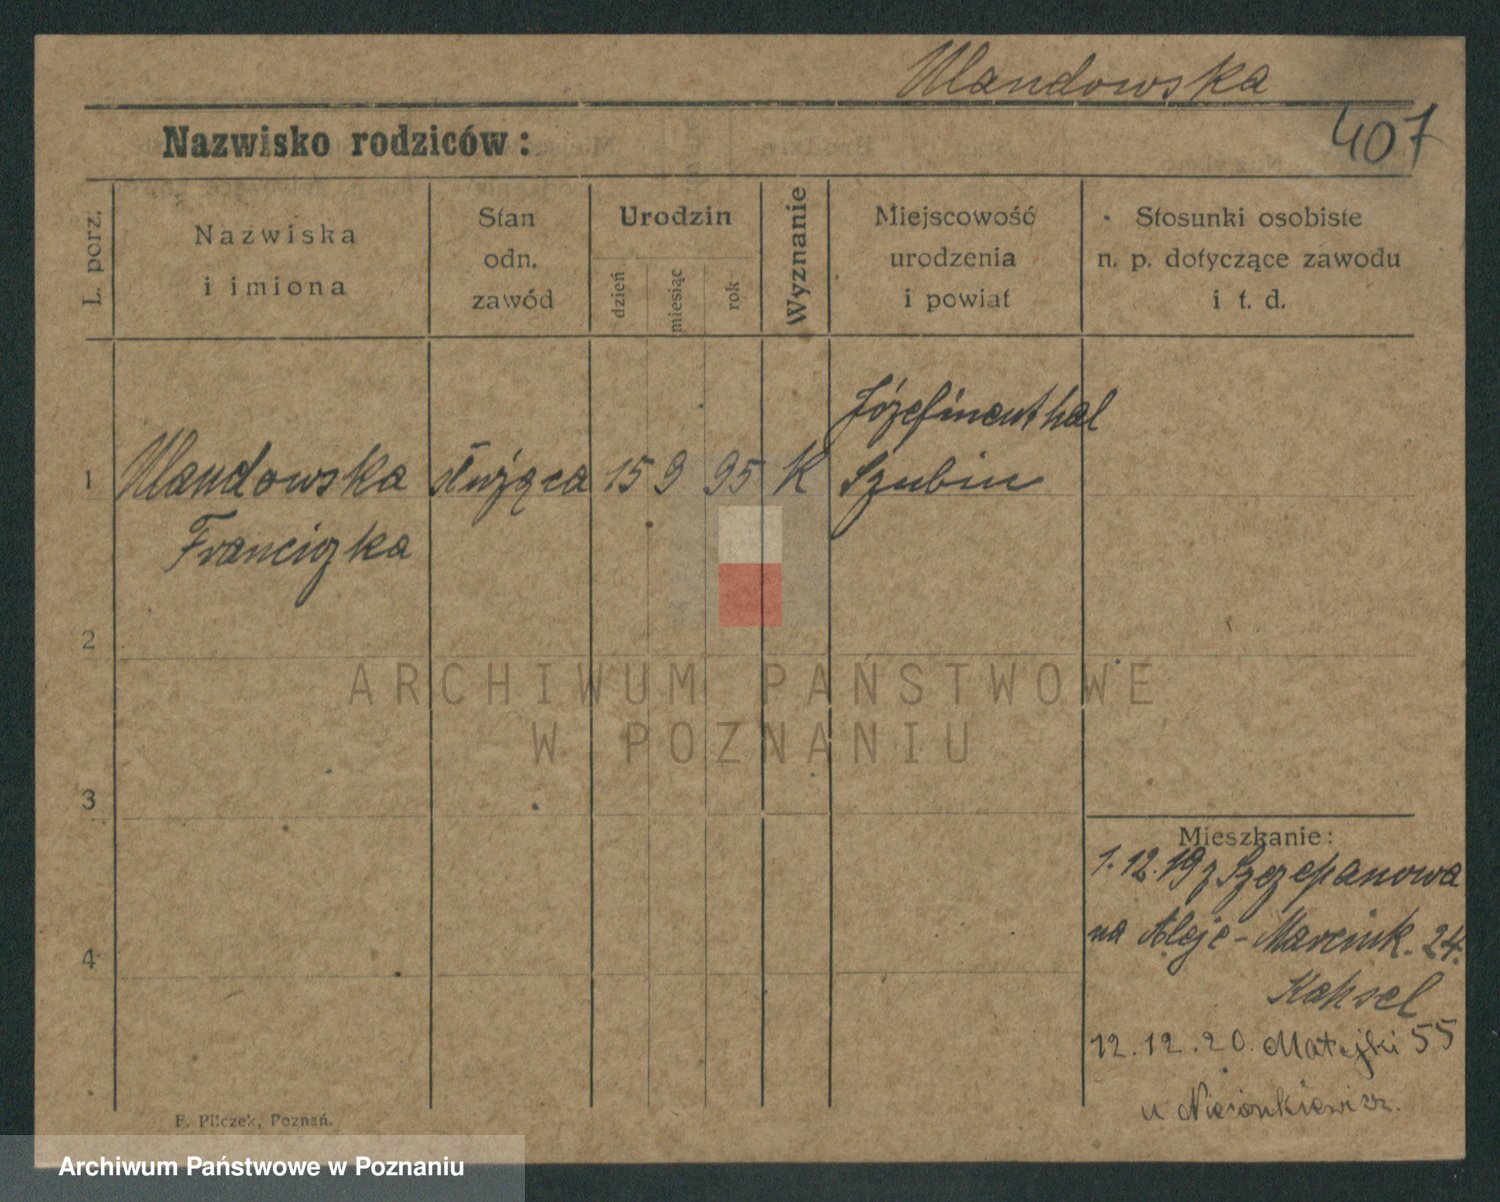 Ulandowska
407
Nazwisko rodziców:
L. porz.
Nazwiska
i imiona
Stan
odn.
zawód
Urodzin
dzień
miesiąc
rok
Wyznanie
Miejscowość
urodzenia
i powiat
Stosunki osobiste
n. p. dotyczące zawodu
i t. d.
Józefinenthal
1 Ulandowska służąca 15 9 95 K Szubin
Franciszka
2
ARCHIWUM PAŃSTWOWE
W POZNANIU
3
Mieszkanie:
1.12.19 z Szczepanowa
na Aleje-Marcink. 24.
4
12.12.20. Matejki 55
u
F. Pilczek, Poznań.
Archiwum Państwowe w Poznaniu